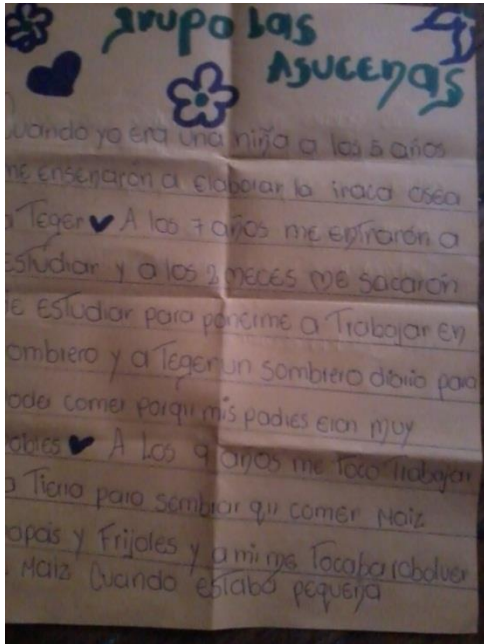 grupo Las
Asucenas
cuando yo era una niña a los 5 años
me enseñaron a elaborar la iraca osea
a Teger A los 7 años me entraron a
estudiar y a los 2 meces me sacarón
de estudiar para ponerme a Trabajar en
ombrero y a Teger un sombrero diario para
oder comer porqu mis padres eran muy
obles A Los 9 años me Toco Trabajar
a Tierra para sembrar qu comer Maiz
apas y Frijoles y a mi me Tocaba robolver
Maiz Cuando estaba pequeña